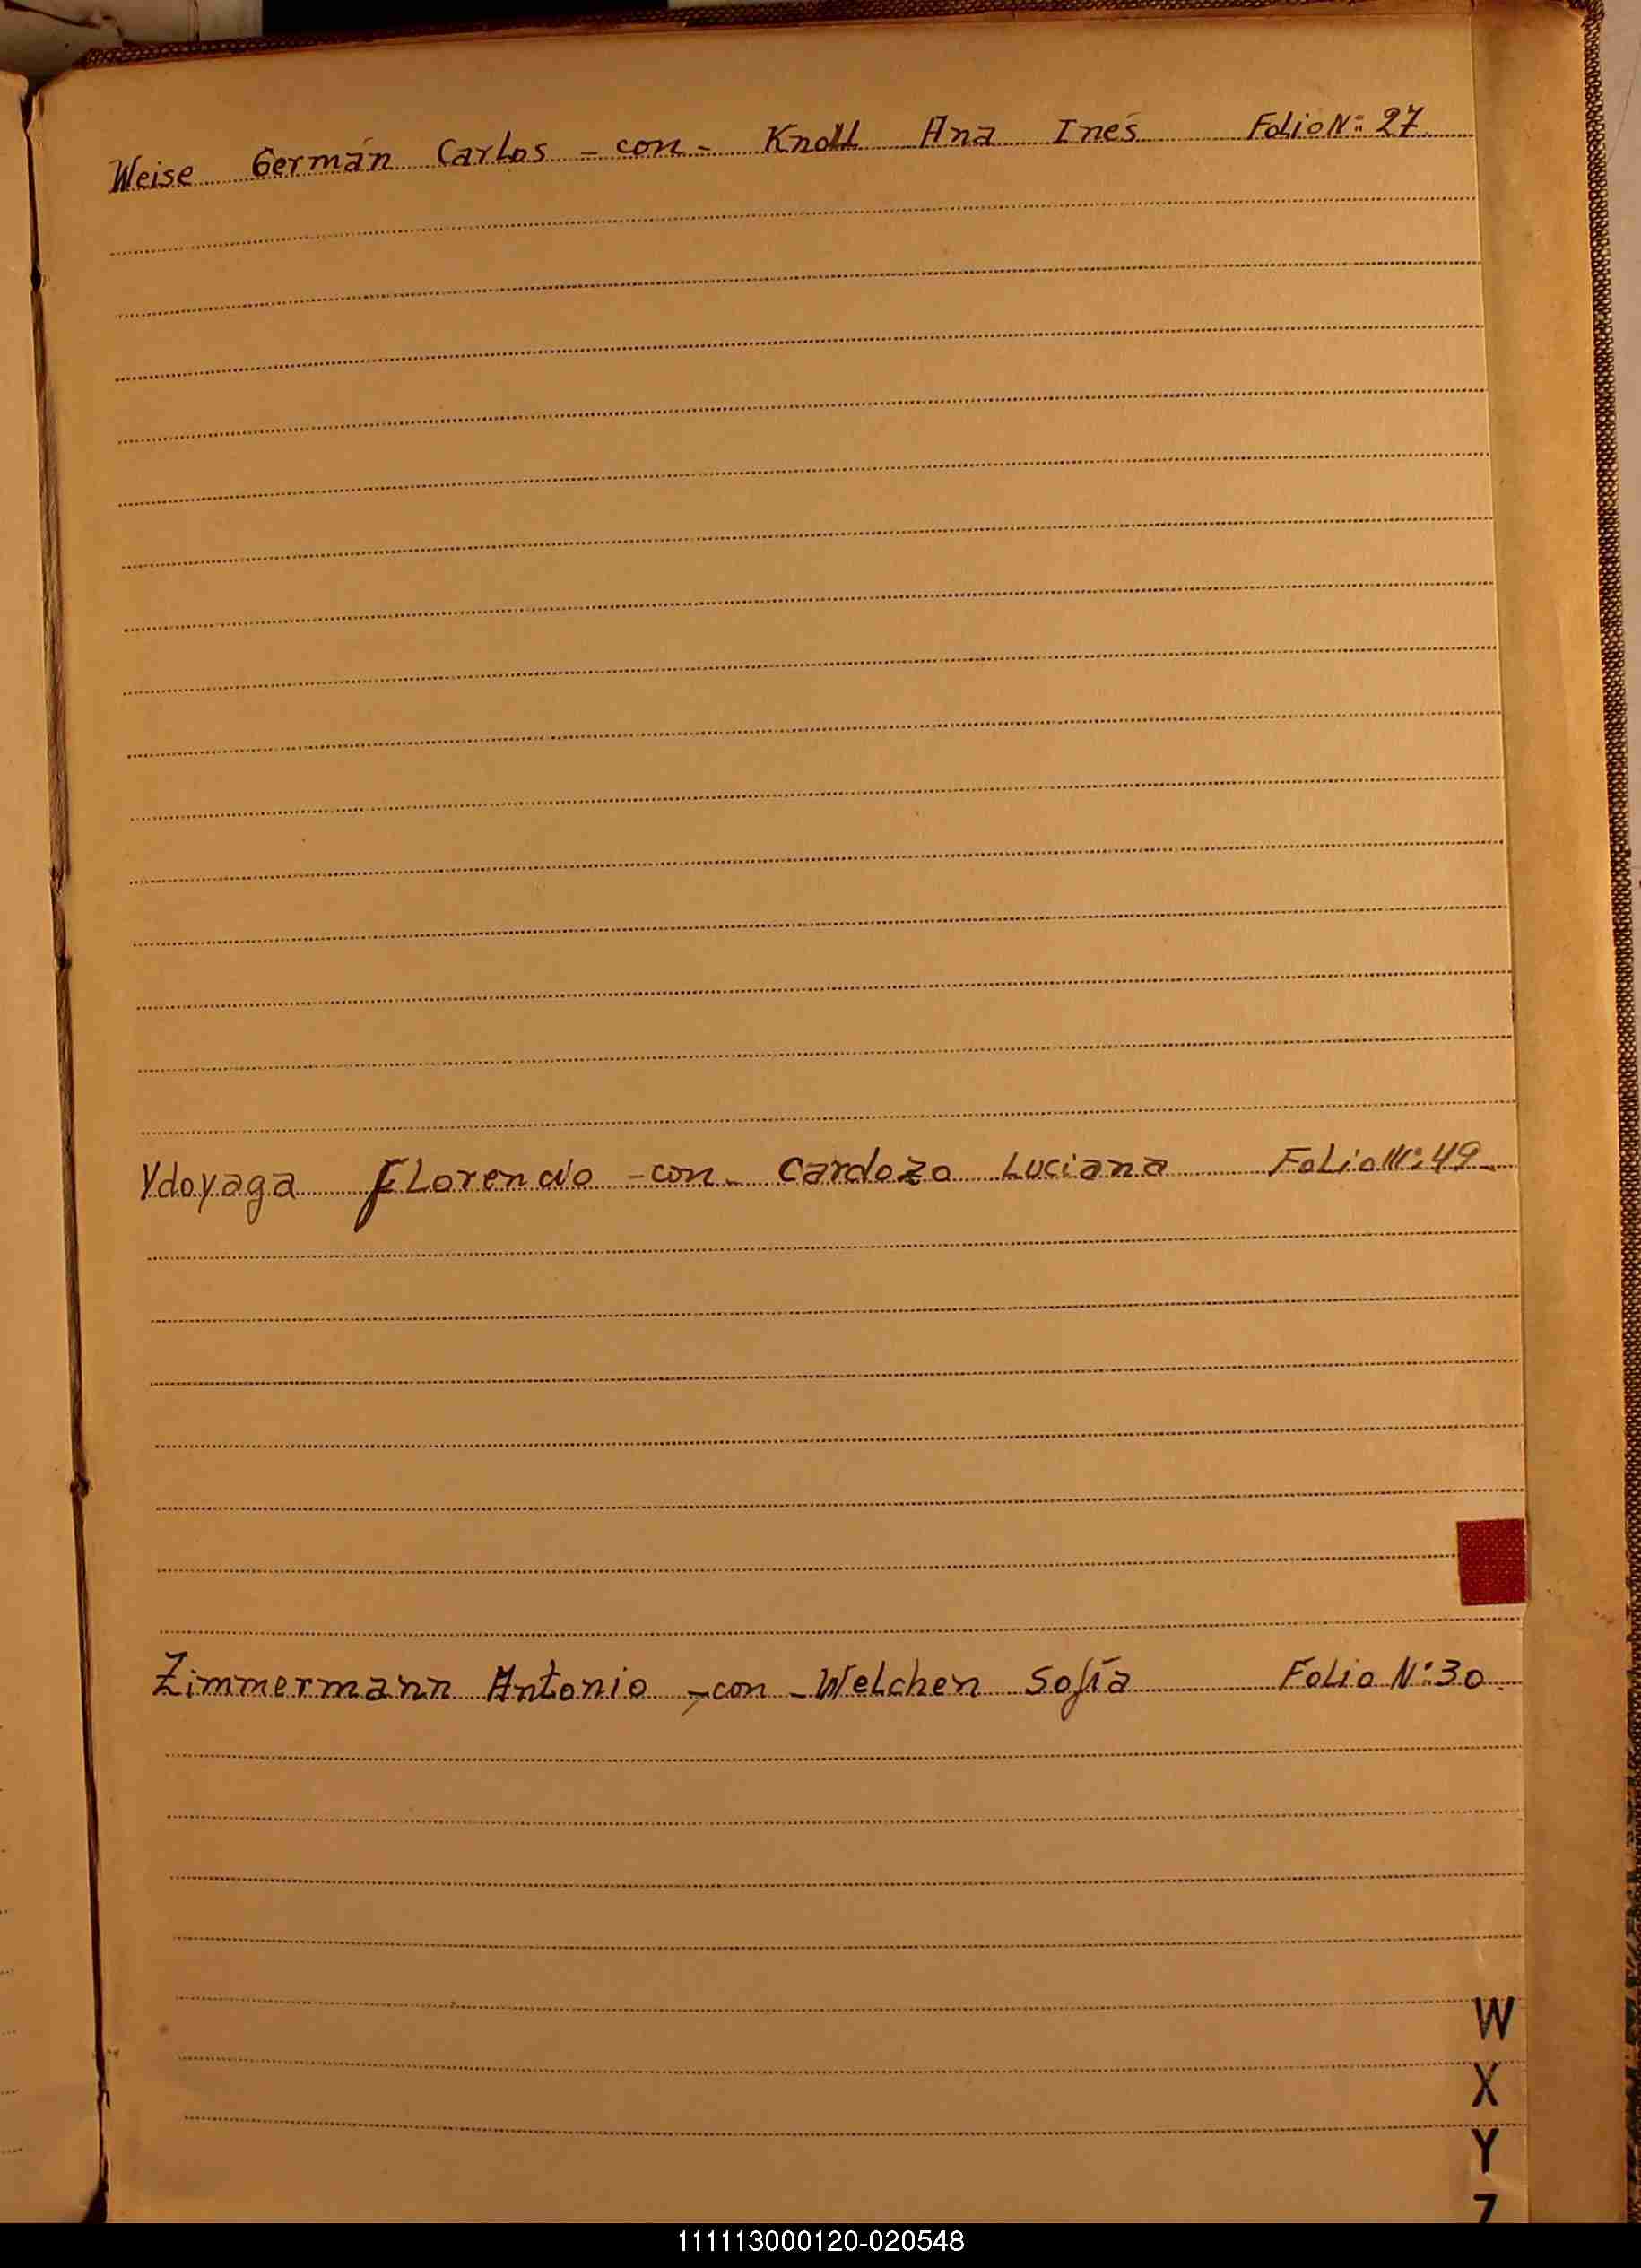 Weise Germán Carlos - con - Knoll Ana Inés Folio Nº: 27
Ydoyaga Florencio - con - Cardozo Luciana Folio Nº: 49
Zimmermann Antonio - con - Welchen Sofía Folio Nº: 30
W
X
Y
Z
111113000120-020548